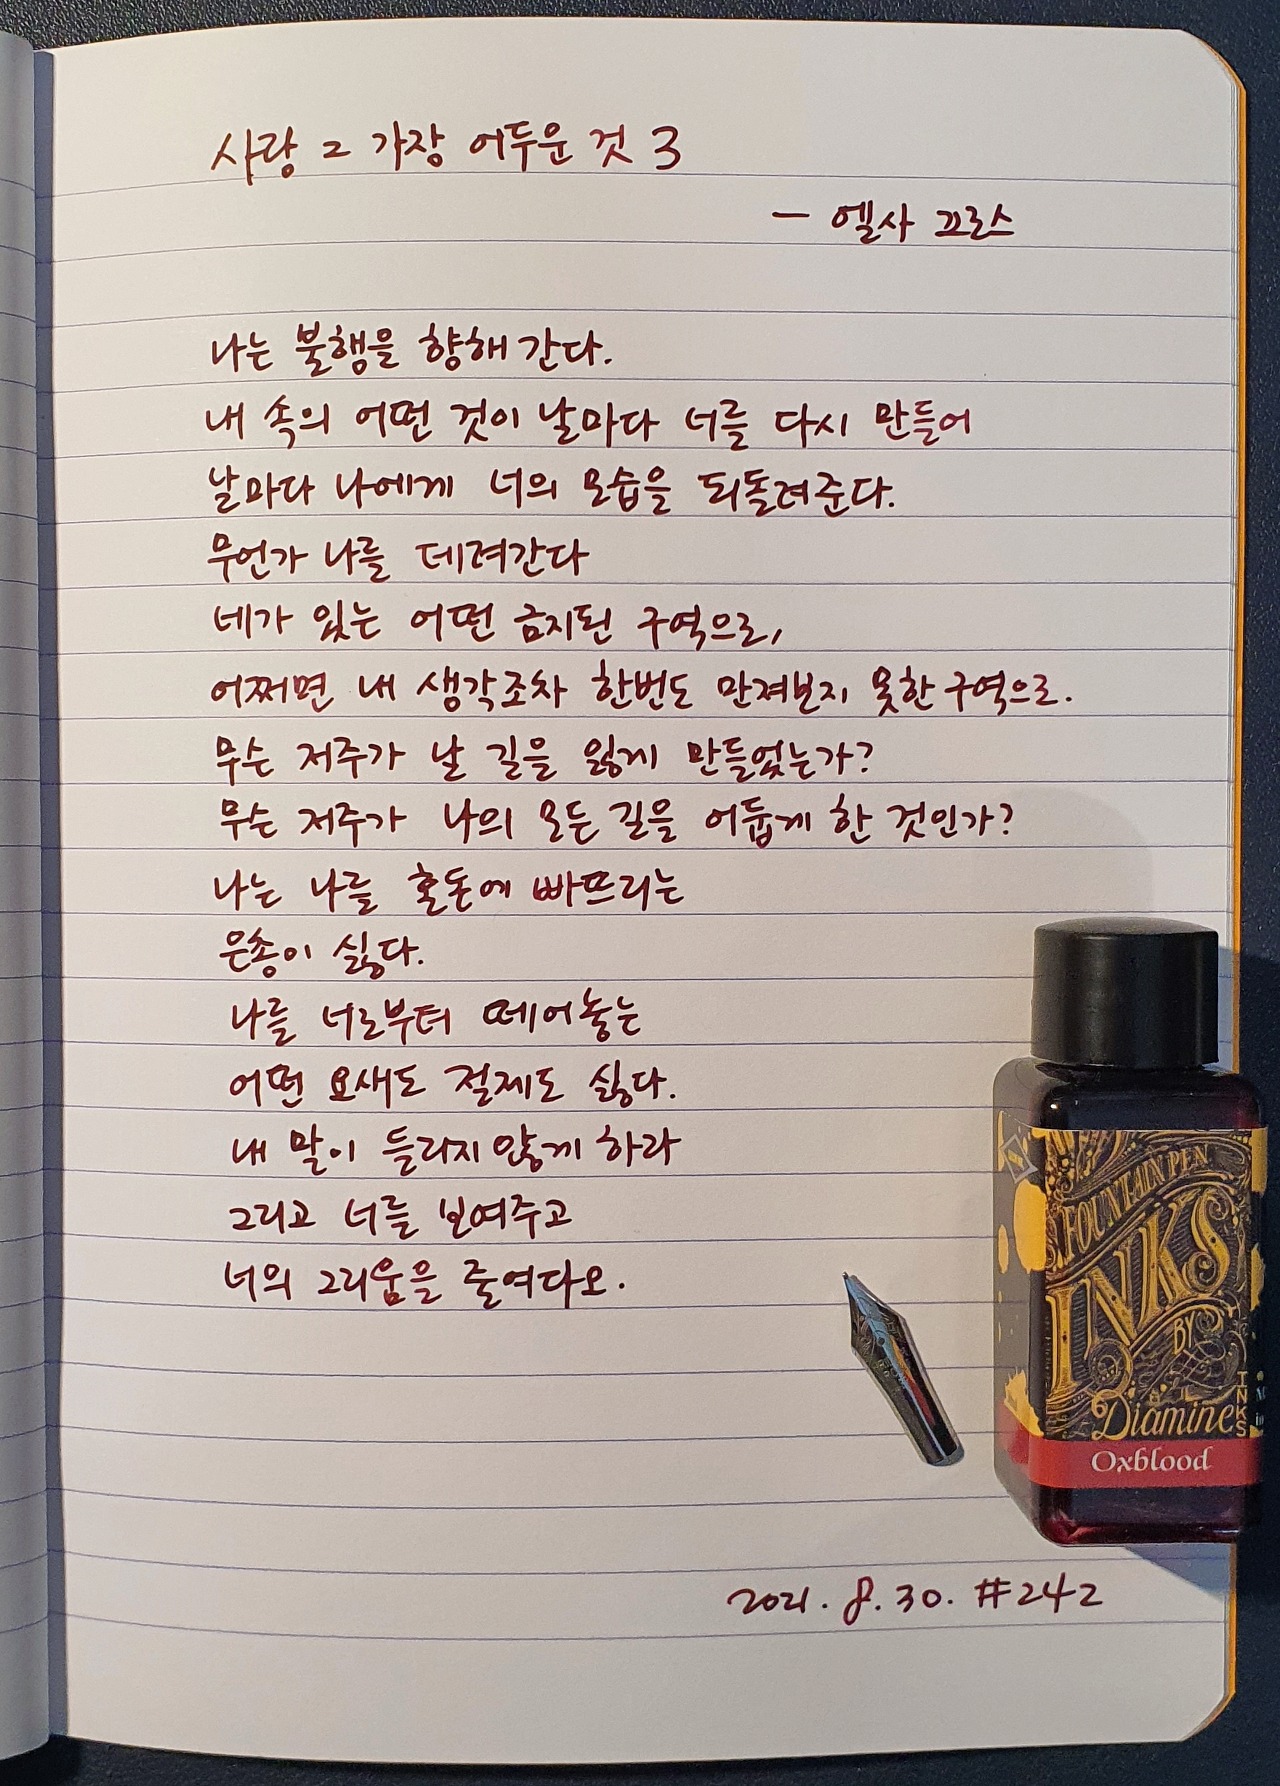 사랑 = 가장 어두운 것 3
- 엘사 끄로스
나는 불행을 향해 간다.
내 속의 어떤 것이 날마다 너를 다시 만들어
날마다 나에게 너의 모습을 되돌려준다.
무언가 나를 데려간다
네가 있는 어떤 금지된 구역으로,
어쩌면 내 생각조차 한번도 만져보지 못한 구역으로.
무슨 저주가 날 길을 잃게 만들었는가?
무슨 저주가 나의 모든 길을 어둡게 한 것인가?
나는 나를 혼돈에 빠뜨리는
은총이 싫다.
나를 너로부터 떼어놓는
어떤 요새도 절제도 싫다.
내 말이 들리지 않게 하라
그리고 너를 보여주고
너의 그리움을 줄여다오.
FOUNTAIN PEN
INKS
BY
Diamine
INKS
Oxblood
2021. 8. 30. #242